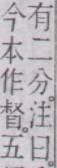 有二分。注曰。
今本作督。五